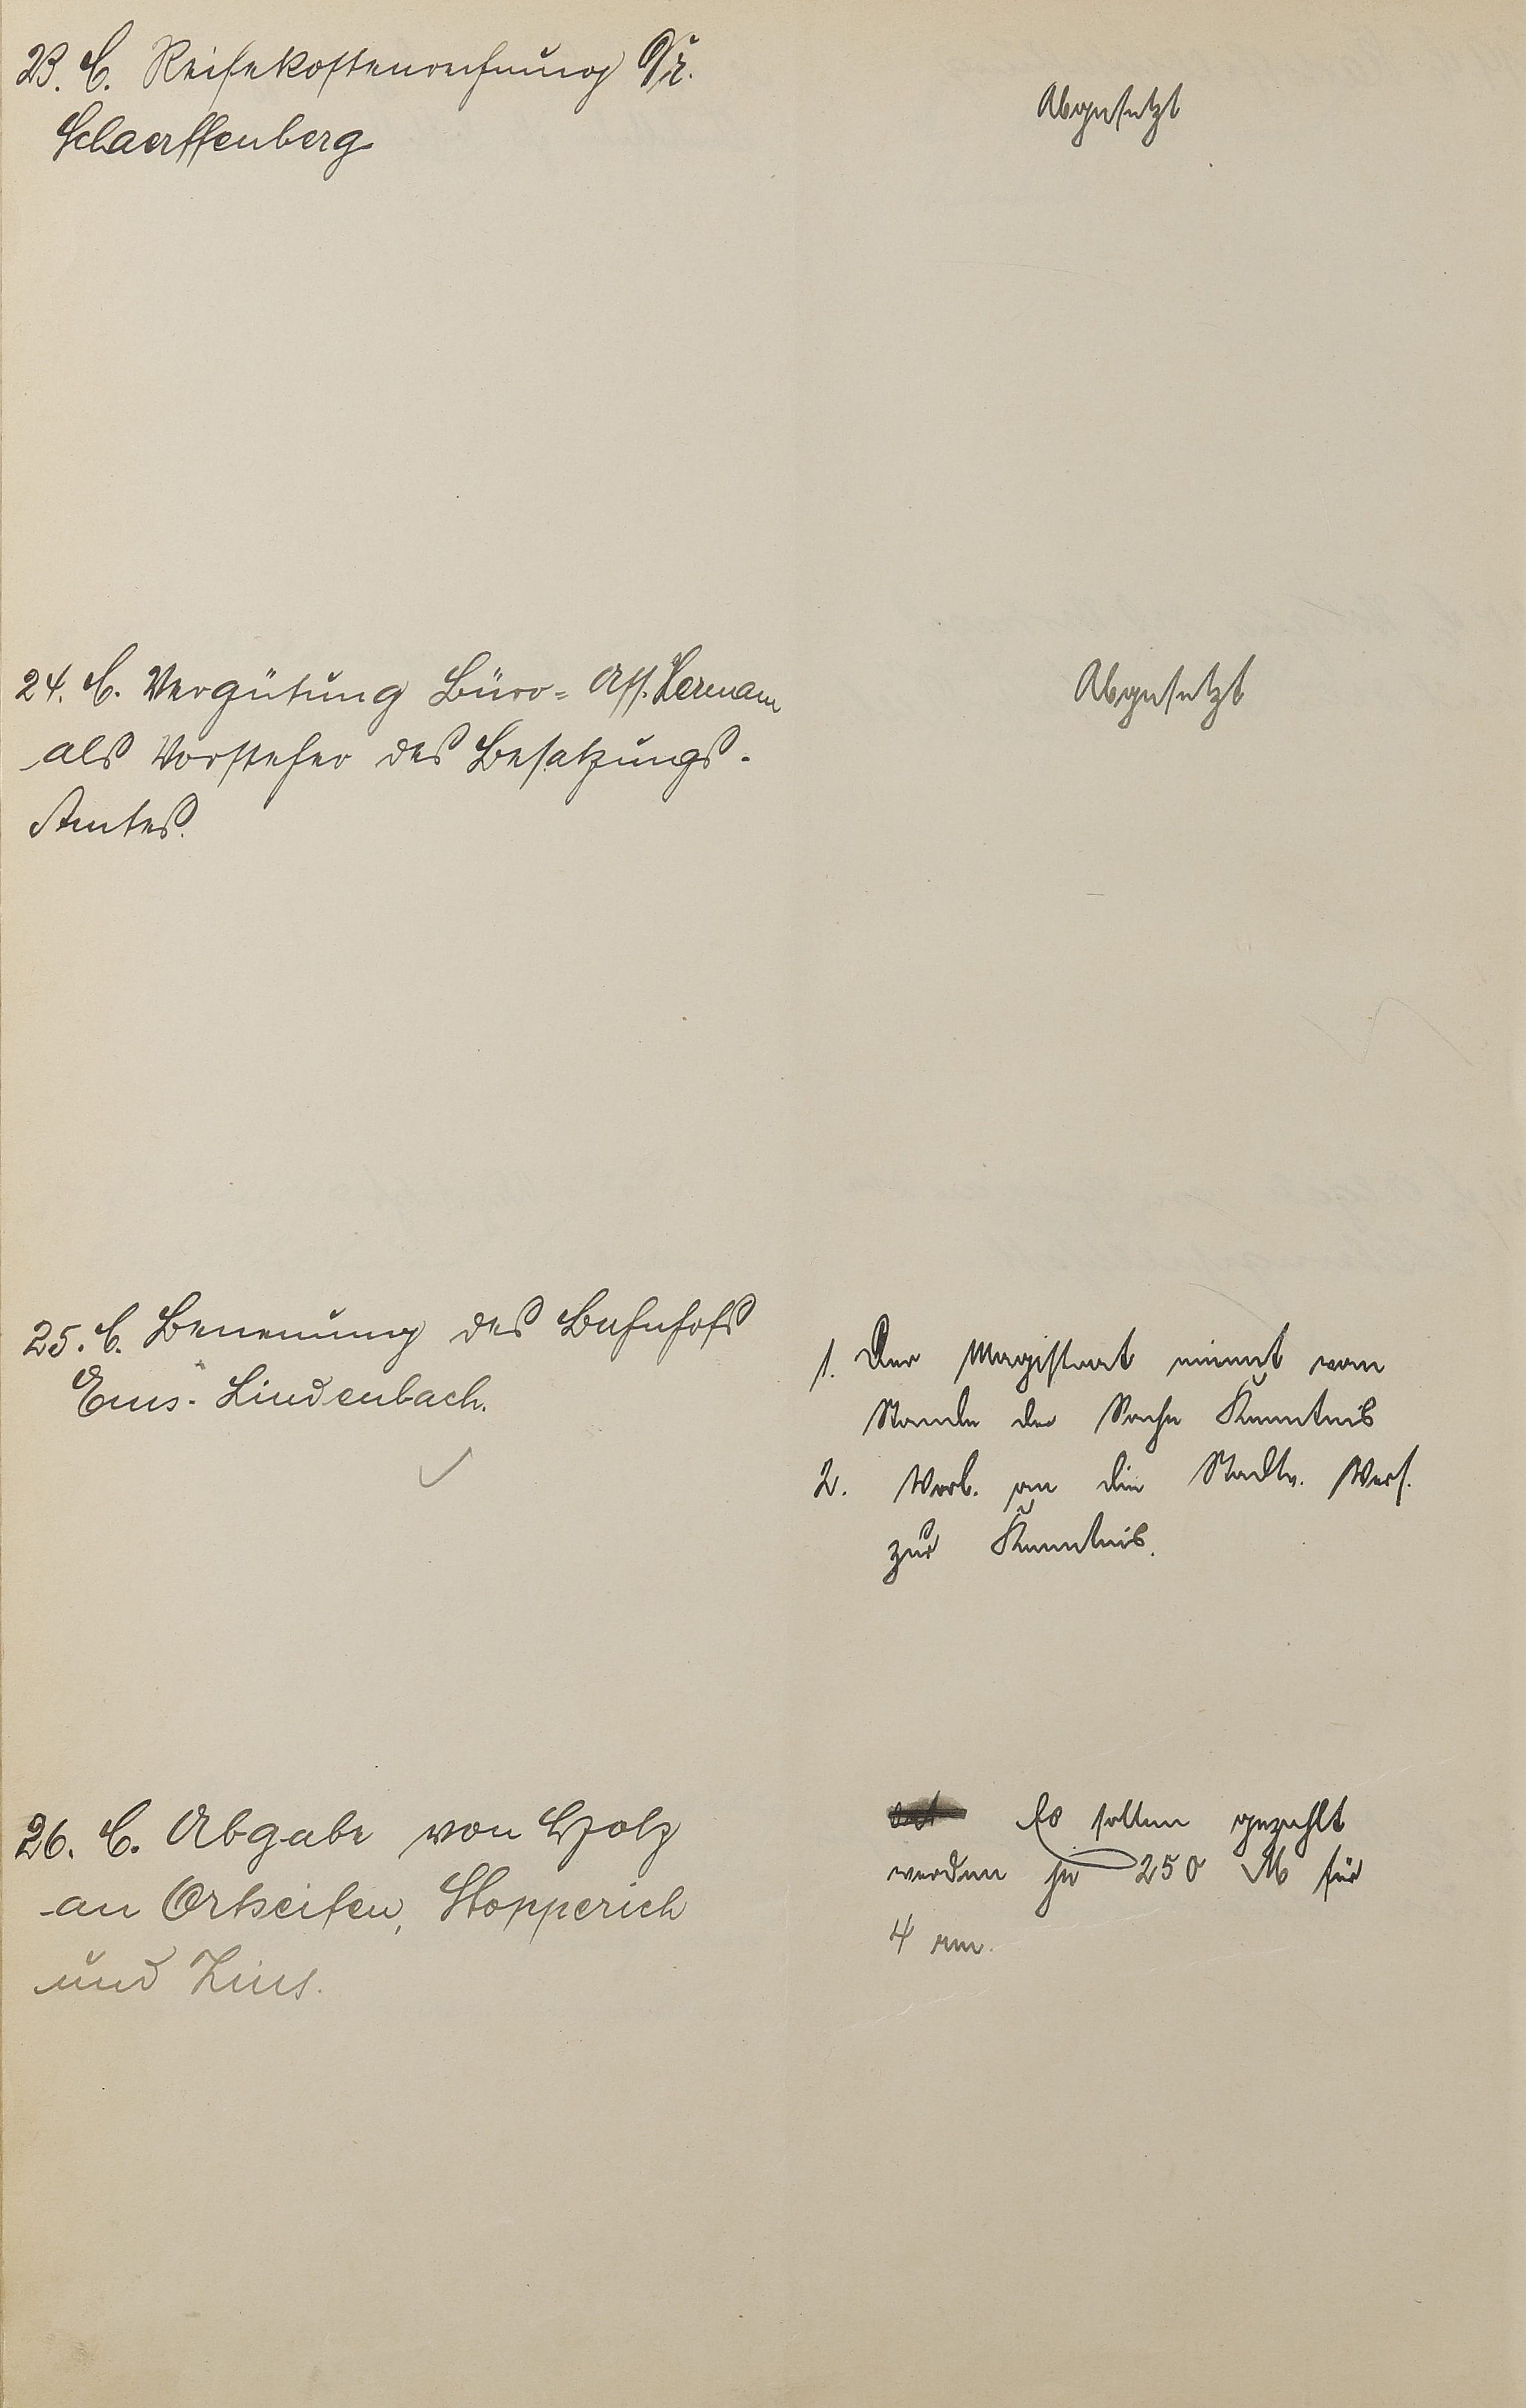 23. C. Reisekostenrechnung Dr.
Schaerffenberg
Abgesetzt
24. C. Vergütung Büro= Ass. Hermann
als Vorsteher des Besatzungs-
Amtes.
Abgesetzt
25. C. Benennung des Bahnhofs
Ems-Lindenbach.
1. Der Magistrat nimmt vom
Stande der Sache Kenntnis
2. Vorl. an die Stadtv. Vers.
zur Kenntnis.
26. C. Abgabe von Holz
an Ortseifen, Stopperich
und Zins.
Es sollen gezahlt
werden je 250 M für
4 rm.